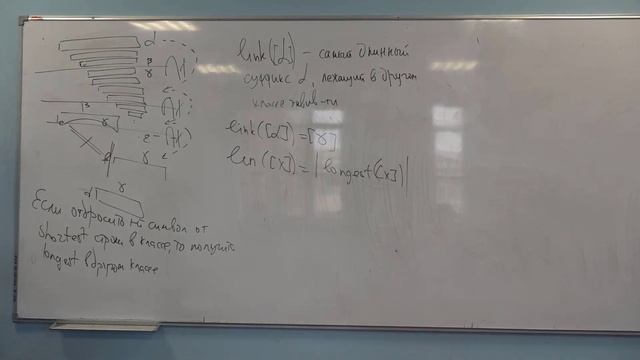 link([α]) - самый длинный
суффикс α, лежащий в другом
классе эквив-ти
link([α]) = [γ]
len([x]) = |longest([x])|
α
β
γ
β
γ
γ
γ
α
Если отбросить символ от
shortest строки в классе, то получить
longest в другом классе